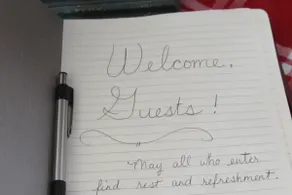 Welcome,
Guests!
May all who enter
find rest and refreshment.